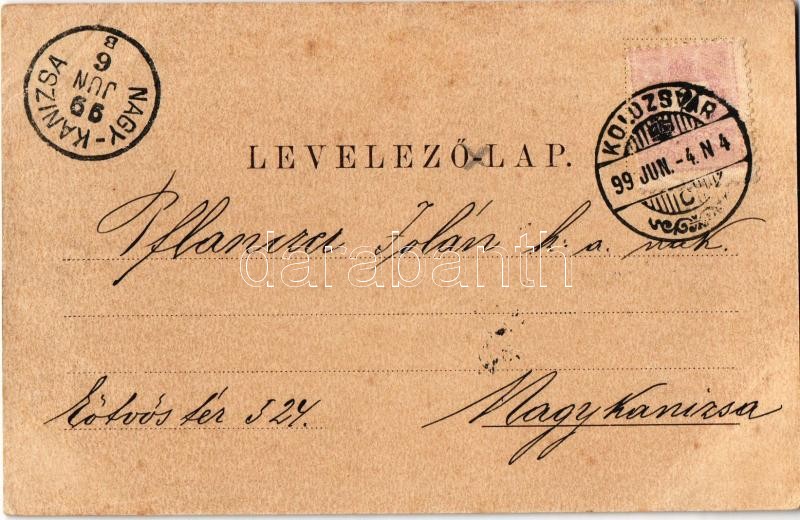 NAGY-KANIZSA
99
JUN
6
B
KOLOZSVÁR
99 JUN. -4. N 4
LEVELEZŐ-LAP.
Pflanzer Jolán k. a. nak.
darabanth
Eötvös tér 324.
Nagykanizsa